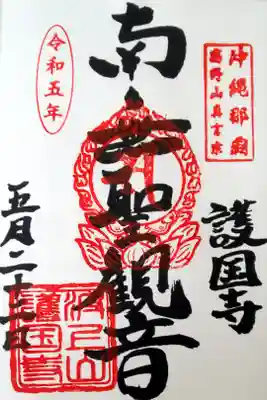 沖縄那覇
高野山真言宗
護国寺
南無聖観音
令和五年
五月
波上山
護国寺